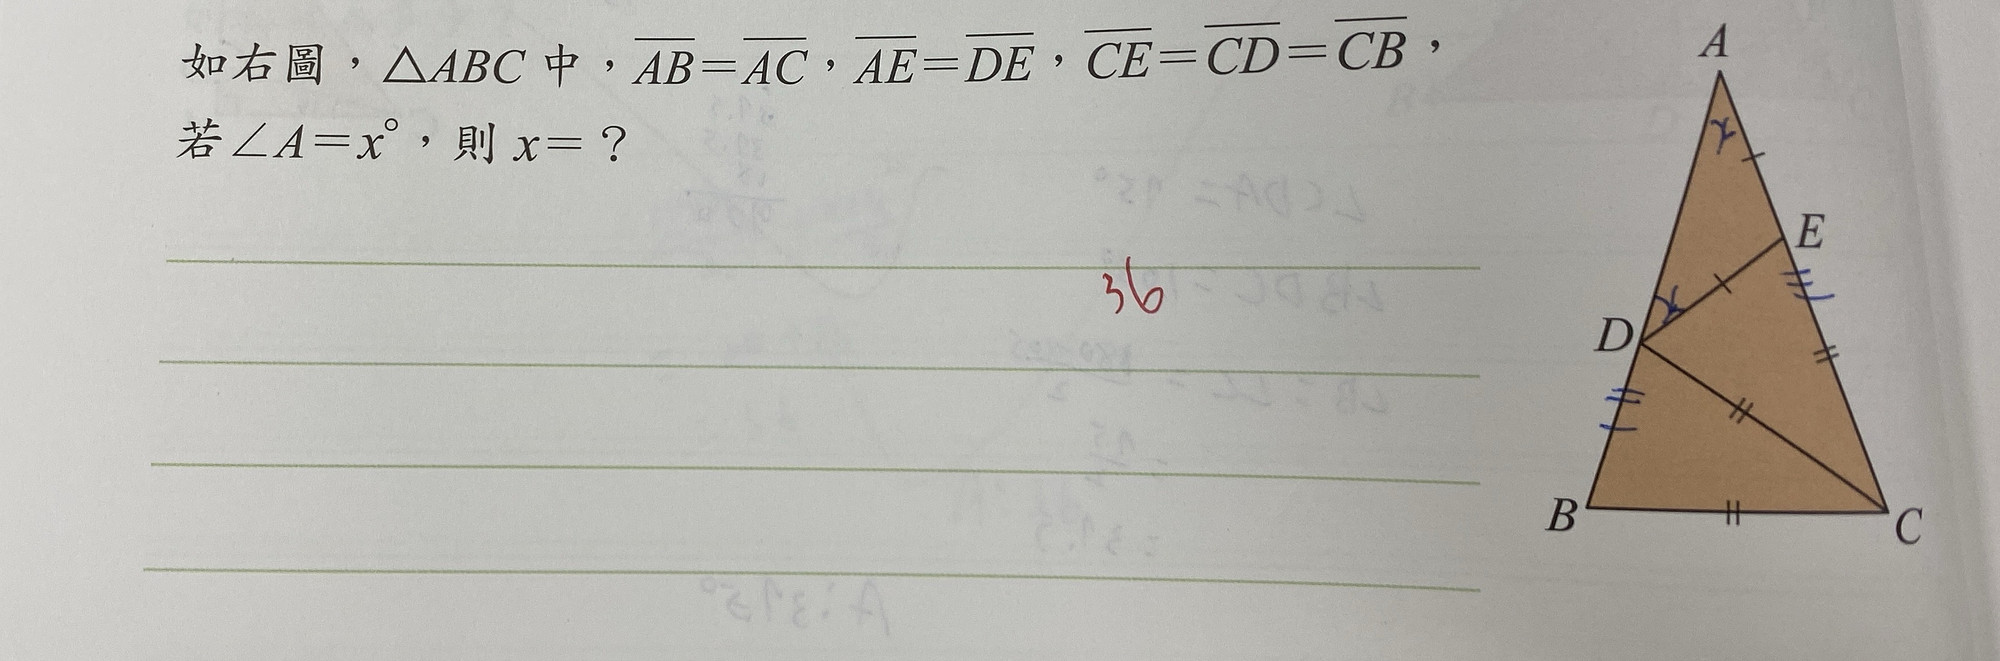 如右圖，△ABC 中，AB=AC，AE=DE，CE=CD=CB，
若∠A=x°，則 x=？
36
A
x
E
x
D
B
C